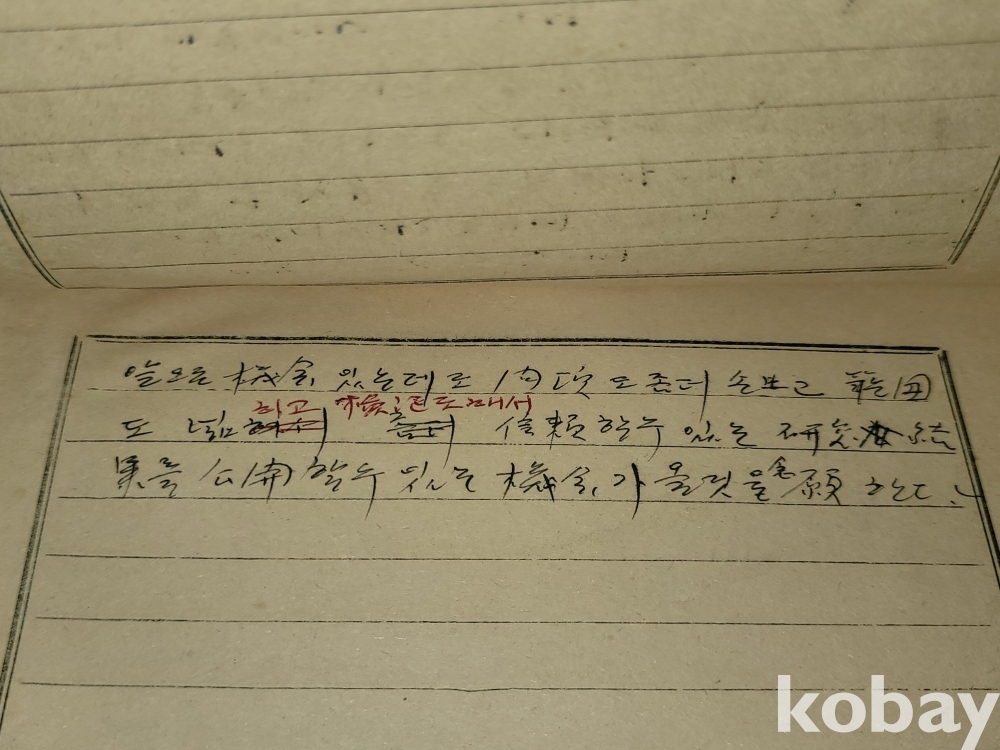 앞으로 機会 있는데로 內項도 좀더 손보고 範囲
하고 檢討도 해서
도 넓 信賴할수 있는 研究 結
果를 公開할수 있는 機会가 올것을 念願 한다.
kobay